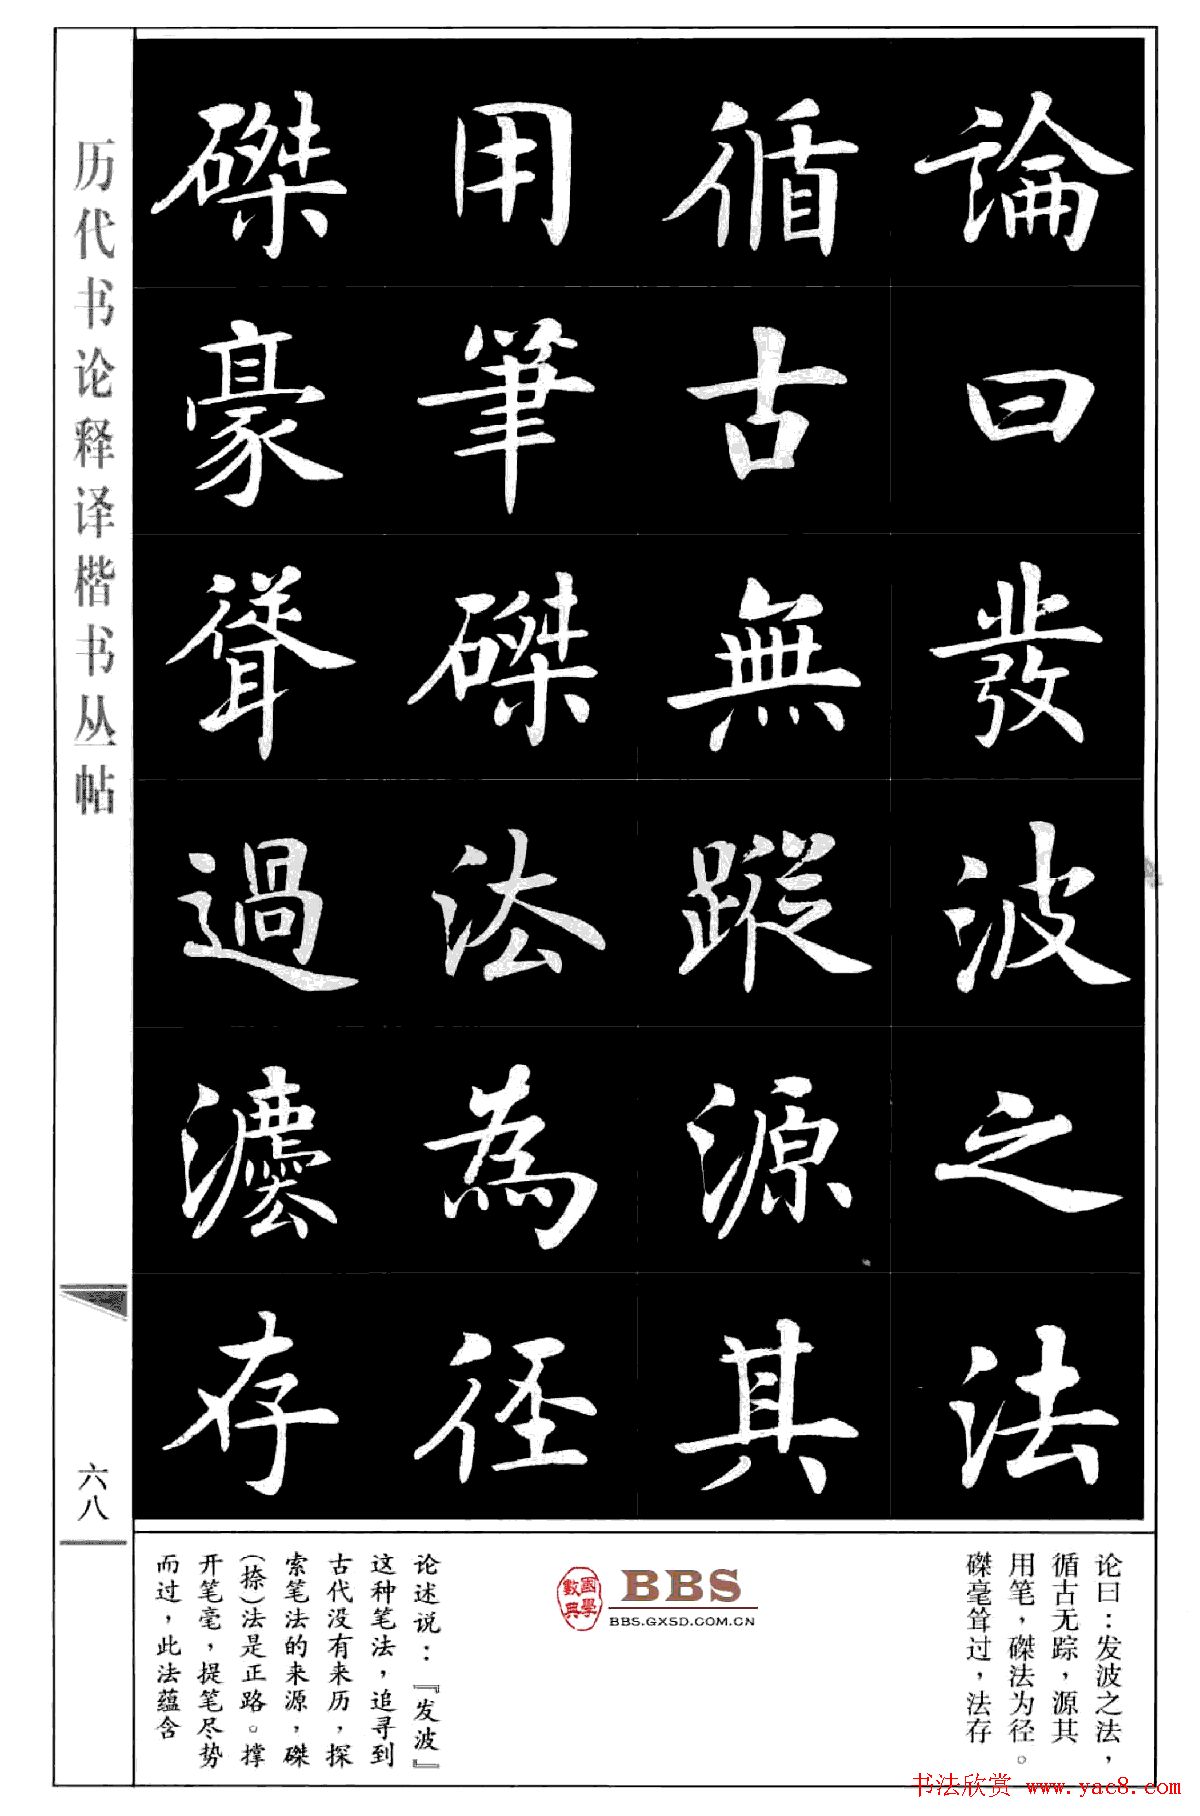 論曰發波之法
循古無蹤源其
用筆磔法為徑
磔豪聳過灋存
历代书论释译楷书丛帖
六八
论曰：发波之法，
循古无踪，源其
用笔，磔法为径。
磔毫耸过，法存
國學
數典
BBS
BBS.GXSD.COM.CN
论述说：『发波』
这种笔法，追寻到
古代没有来历，探
索笔法的来源，磔
（捺）法是正路。撑
开笔毫，提笔尽势
而过，此法蕴含
书法欣赏 www.yac8.com